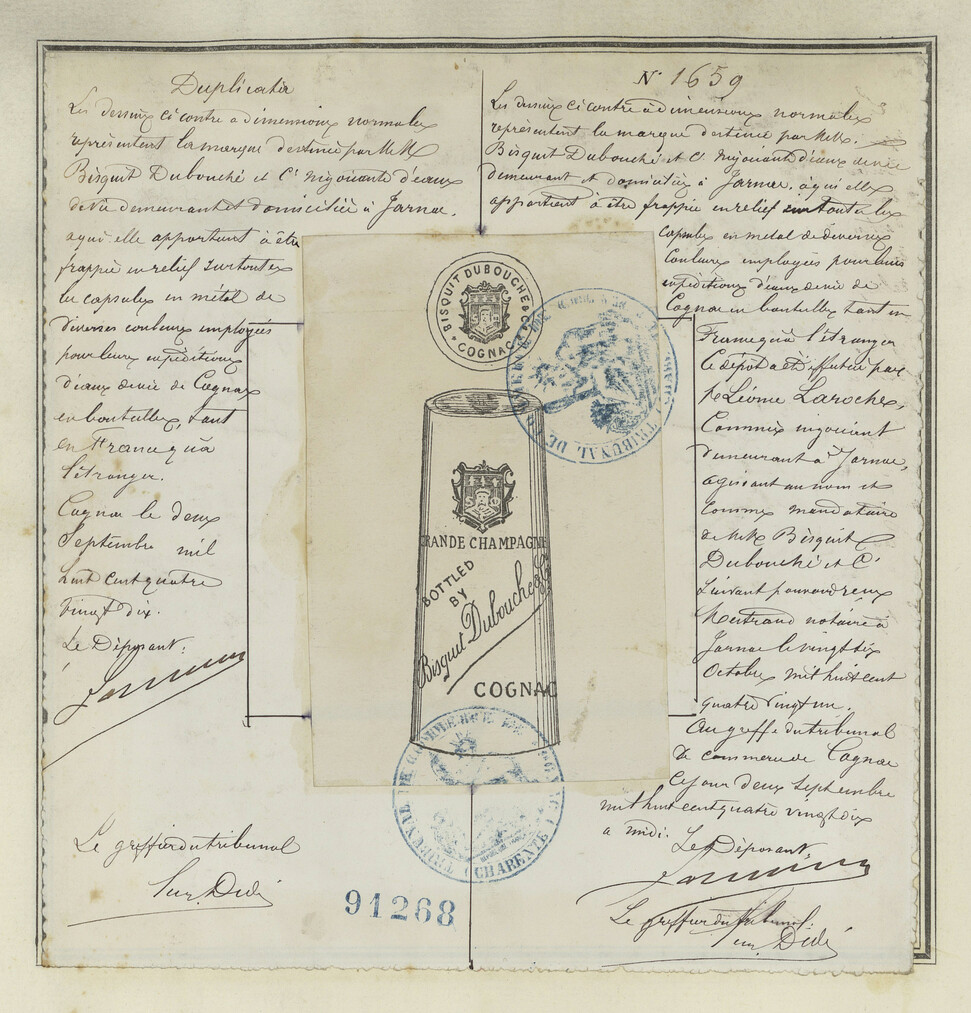 Duplicata
Les dessins ci contre à dimensions normales
représentent la marque destinée par MM
Bisquit Dubouché et Cie négociants d'eaux
de vie demeurant et domiciliés à Jarnac.
à qui elle appartient à être
frappée en relief sur toutes
les capsules en métal de
diverses couleurs employées
pour leurs expéditions
d'eaux de vie de Cognac
en bouteilles, tant
en France qu'à
l'étranger.
Cognac le deux
Septembre mil
huit cent quatre
vingt dix.
Le Déposant:
Le greffier du tribunal
N° 1659
Les dessins ci contre à dimensions normales
représentent la marque destinée par MM.
Bisquit Dubouché et Cie négociants d'eaux de vie
demeurant et domiciliés à Jarnac. à qui elle
appartient à être frappée en relief sur toutes les
capsules en métal de diverses
couleurs employées pour leurs
expéditions d'eaux de vie de
Cognac en bouteilles tant en
France qu'à l'étranger
Ce dépôt a été effectué par
Mr Léonce Laroche,
Commis négociant
demeurant à Jarnac,
agissant au nom et
comme mandataire
de MM. Bisquit
Dubouché et Cie
suivant pouvoir reçu
Mertrand notaire à
Jarnac le vingt six
Octobre mil huit cent
quatre vingt un.
Au greffe du tribunal
de commerce de Cognac
Ce jour deux septembre
mil huit cent quatre vingt dix
à midi.
Le Déposant:
Le greffier du tribunal
BISQUIT DUBOUCHÉ & Co
COGNAC
GRANDE CHAMPAGNE
BOTTLED
BY
Bisquit Dubouché & Co
COGNAC
TRIBUNAL DE
TRIBUNAL DE COMMERCE DE
CHARENTE
91268